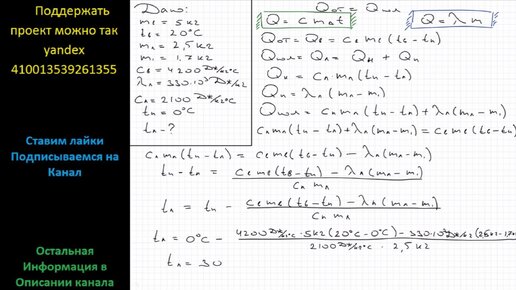 Поддержать
проект можно так
yandex
410013539261355
Ставим лайки
Подписываемся на
Канал
Остальная
Информация в
Описании канала
Дано:
mв = 5 кг
tв = 20°C
mл = 2,5 кг
m₁ = 1,7 кг
Cв = 4200 Дж/кг°C
λл = 330·10³ Дж/кг
Cл = 2100 Дж/кг°C
tп = 0°C
tл - ?
Qот = Qпол
Q = cmΔt
Q = λm
Qот = Qв = Cв mв (tв - tп)
Qпол = Qл = Qн + Qп
Qн = Cл mл (tп - tл)
Qп = λл (mл - m₁)
Qпол = Cл mл (tп - tл) + λл (mл - m₁)
Cл mл (tп - tл) + λл (mл - m₁) = Cв mв (tв - tп)
Cл mл (tп - tл) = Cв mв (tв - tп) - λл (mл - m₁)
tп - tл = Cв mв (tв - tп) - λл (mл - m₁) / Cл mл
tл = tп - Cв mв (tв - tп) - λл (mл - m₁) / Cл mл
tл = 0°C - 4200 Дж/кг°C · 5 кг (20°C - 0°C) - 330·10³ Дж/кг (2,5 кг - 1,7 / 2100 Дж/кг°C · 2,5 кг
tл = 30